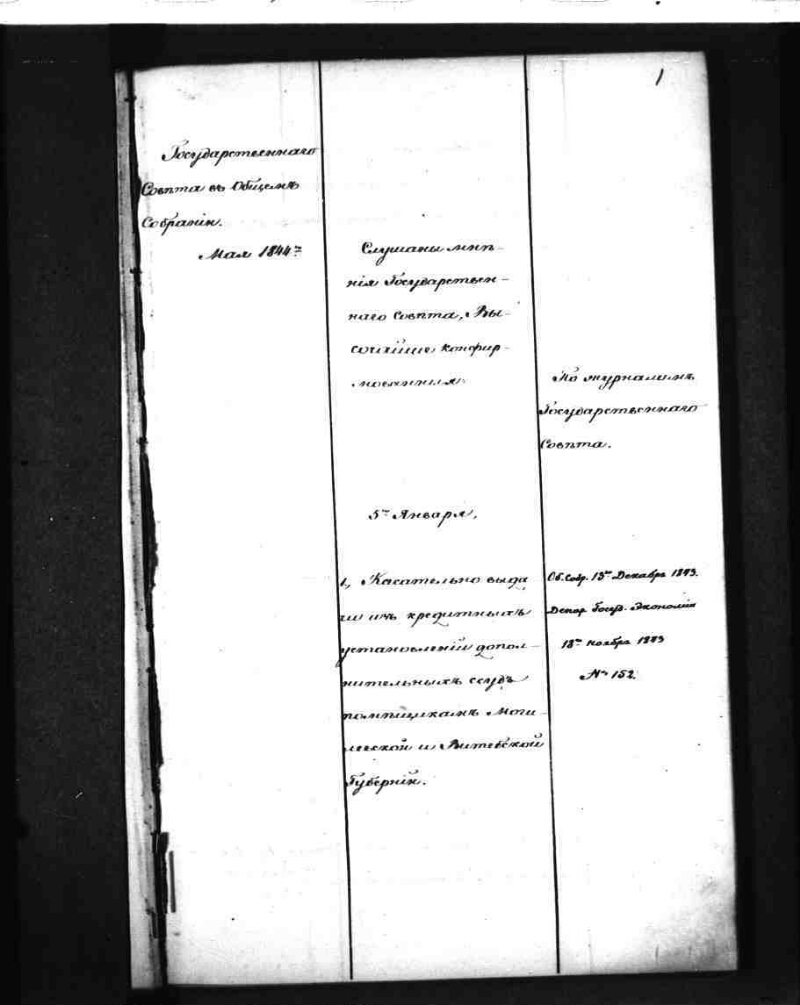 1
Государственнаго
Совѣта въ Общемъ
Собраніи.
Мая 1844 г.
Слушаны мнѣ-
нія Государствен-
наго Совѣта, Вы-
сочайше конфир-
мованныя:
По журналамъ
Государственнаго
Совѣта.
5го Января,
1, Касательно выда
чи изъ кредитныхъ
установленій допол-
нительныхъ ссудъ
помѣщикамъ Моги-
левской и Витебской
Губерній.
Об. Собр. 13го Декабр 1843.
Депар. Госуд. Экономіи
18го Ноябр 1843
№ 152.